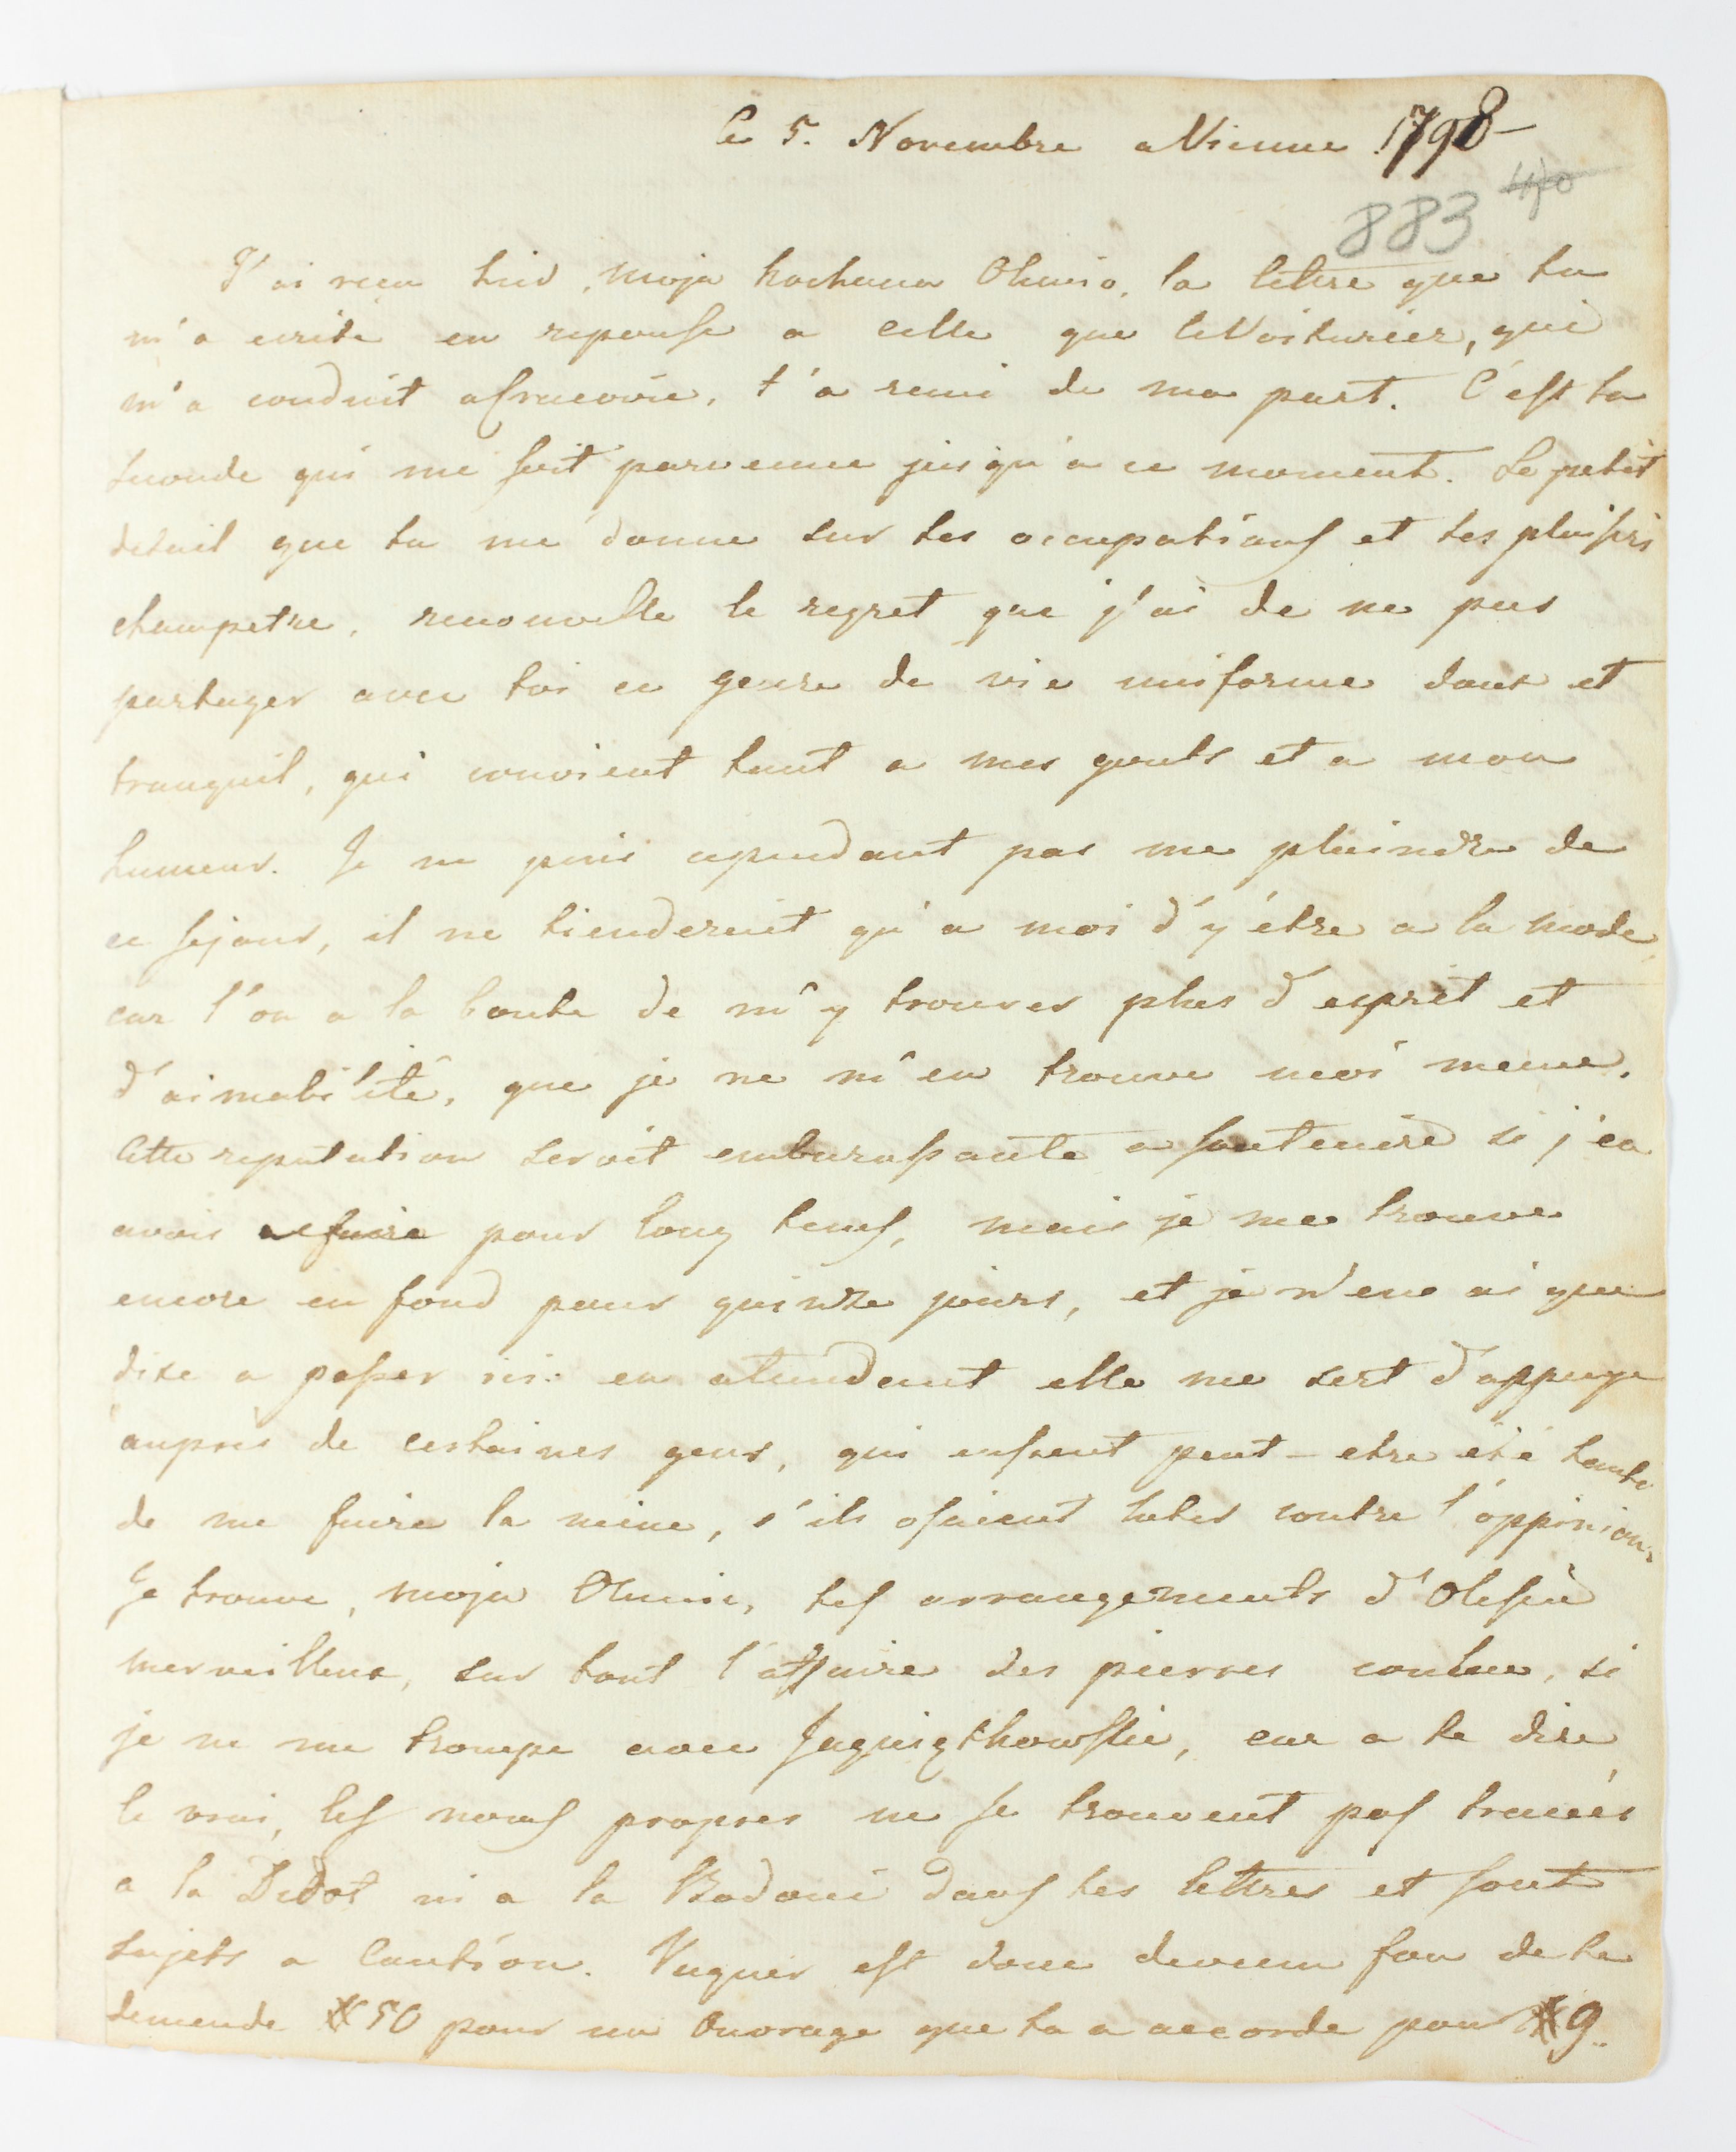 le 5. Novembre a Vienne 1798
883 40
J'ai reçu hier, moja kochana Olunio, la lettre que tu
m'a ecrite en reponse a celle que le Voiturier, qui
m'a conduit a Cracovie, t'a remi de ma part. C'est ta
seconde qui me soit parvenue jusqu'a ce moment. Le petit
detail que tu me donne sur tes occupations et tes plaisirs
champetre, renouvelle le regret que j'ai de ne pas
partager avec toi ce genre de vie uniforme doux et
tranquil, qui convient tant a mes gouts et a mon
humeur. Je ne puis cependant pas me plaindre de
ce sejour, il ne tienderait qu'a moi d'y être a la mode,
car l'on a la bonte de m'y trouver plus d'esprit et
d'aimabilité, que je ne m'en trouve moi meme.
Cette reputation seroit embarassante a soutenire si j'en
avais a faire pour long tems, mais je me trouve
encore en fond pour quinze jours, et je n'ene ai que
dixe a passer ici: en atendant elle me sert d'appuye
auprès de certaines gens, qui eussent peut-etre été tenté
de me faire la mine, s'ils osaient luter contre l'oppinion.
Je trouve, moja Olunio, tes arrangements d'Olesin
merveilleux, sur tout l'affaire des pierres conclue, si
je ne me trompe avec, car a te dire
le vrai, les noms propres ne se trouvent pas tracées
a la Didot ni a la Bodoni dans tes lettres et sont
sujets a caution. Vugner est donc devenu fou de te
demende # 50 pour un Ouvrage que ta a accorde pour # 9.